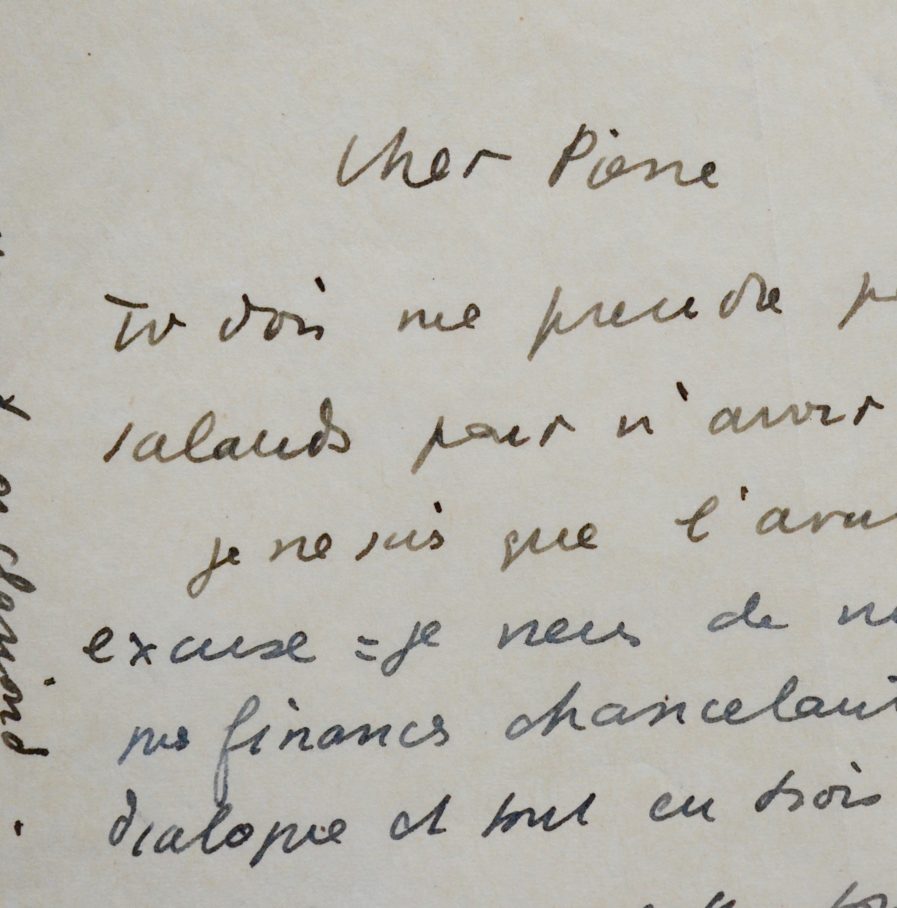 Cher Pierre
Tu dois me prendre
salauds pour n'avoir
je ne suis que l'avou
excuse = je viens de
mes finances chancelant
dialogue et tout en trois